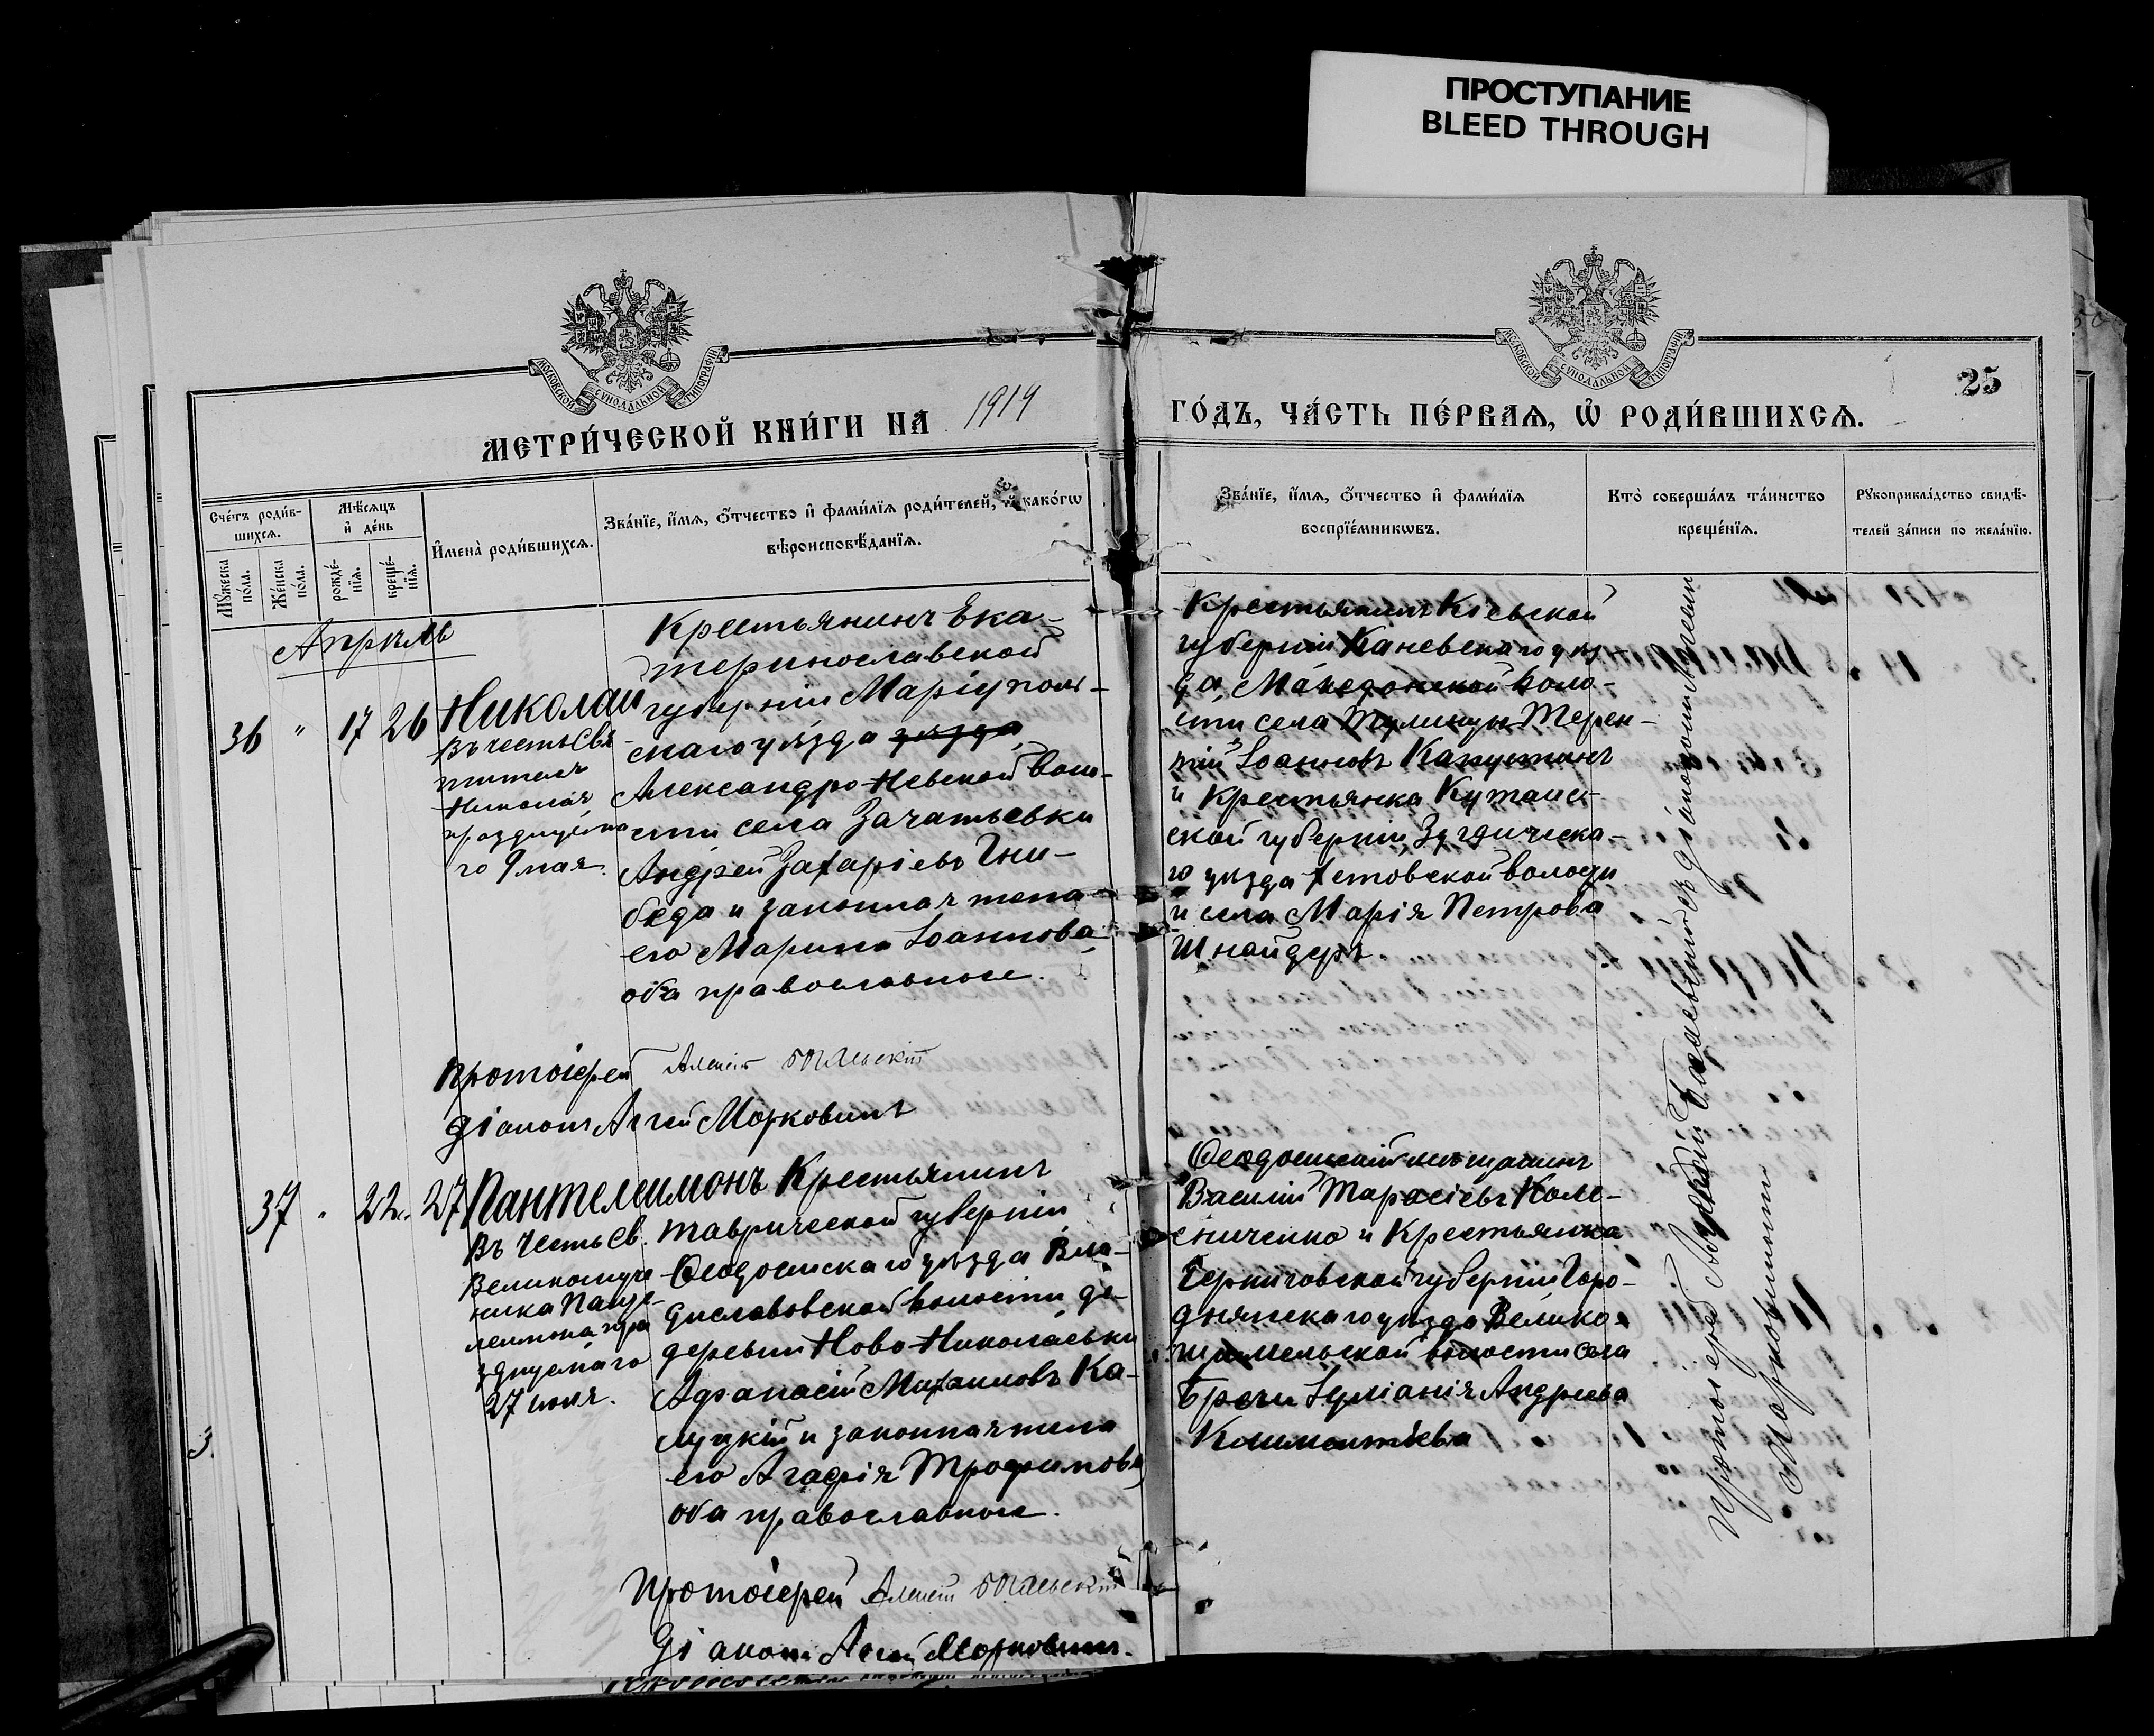 ПРОСТУПАНИЕ
BLEED THROUGH
МОСКОВСКОЙ СѴНОДАЛЬНОЙ ТИПОГРАФІИ
МОСКОВСКОЙ СѴНОДАЛЬНОЙ ТИПОГРАФІИ
25
МЕТРИ́ЧЕСКОЙ КНИ́ГИ НА 1914
ГО́ДЪ, ЧА́СТЬ ПЕ́РВАѦ, Ѿ РОДИ́ВШИХСѦ.
Сче́тъ роди́в-
шихсѧ.
Мꙋ́жеска
по́ла.
Же́нска
по́ла.
Мѣ́сѧцъ
и҆ де́нь
рожде́-
нїѧ.
креще́-
нїѧ.
И҆мена̀ роди́вшихсѧ.
Зва́нїе, и҆́мѧ, ѻ҆́тчество и҆ фами́лїѧ роди́телей, и҆ како́гѡ
вѣроисповѣ́данїѧ.
Зва́нїе, и҆́мѧ, ѻ҆́тчество и҆ фами́лїѧ
воспрїе́мникѡвъ.
Кто̀ соверша́лъ та́инство
креще́нїѧ.
Рꙋкоприкла́дство свидѣ́-
телей за́писи по жела́нїю.
Апрѣль
36 " 17 26 Николай
Въ честь Свя
тителя
Николая
празднуемa
го 9 мая.
Крестьянинъ Ека-
теринославской
губерніи Маріуполь-
скаго уѣзда уѣзда
Александро-Невской воло-
сти села Зачатьевки
Андрей Захаріевъ Гни-
беда и законная жена
его Марина Іоаннова,
оба православные.
Крестьянинъ Кіевской
губерніи Каневскаго уѣз
да, Македонской воло-
сти села Тулинцы Терен-
тій Іоанновъ Капустинъ
и Крестьянка Кутаис-
ской губерніи, Зугдидска-
го уѣзда волости
и села Марія Петрова
Шнайдеръ
Протоіерей Алексій
діаконъ Аггей Морковинъ
37 " 22. 27 Пантелеимонъ
Въ честь Св.
Великомуче
ника Панте-
леимона, пра
зднуемаго
27 июля.
Крестьянинъ
Таврической губерніи,
Ѳеодосійскаго уѣзда Вла-
диславовской волости, де-
деревни Ново-Николаевки
Афанасій Михаиловъ Ка-
луцкій и законная жена
его Агафія Трофимова,
оба православные.
Ѳеодосійскій мѣщанинъ
Василій Тарасіевъ Коле-
сниченко и Крестьянка
Черниговской губерніи Горо-
днянскаго уѣзда Велико-
волости села
Бречи Іуліанія Андреева
Климентьева
Протоіерей Алексій
діаконъ Аггей Морковинъ.
Протоіерей Алексій съ діакономъ Аггеемъ
Морковинымъ